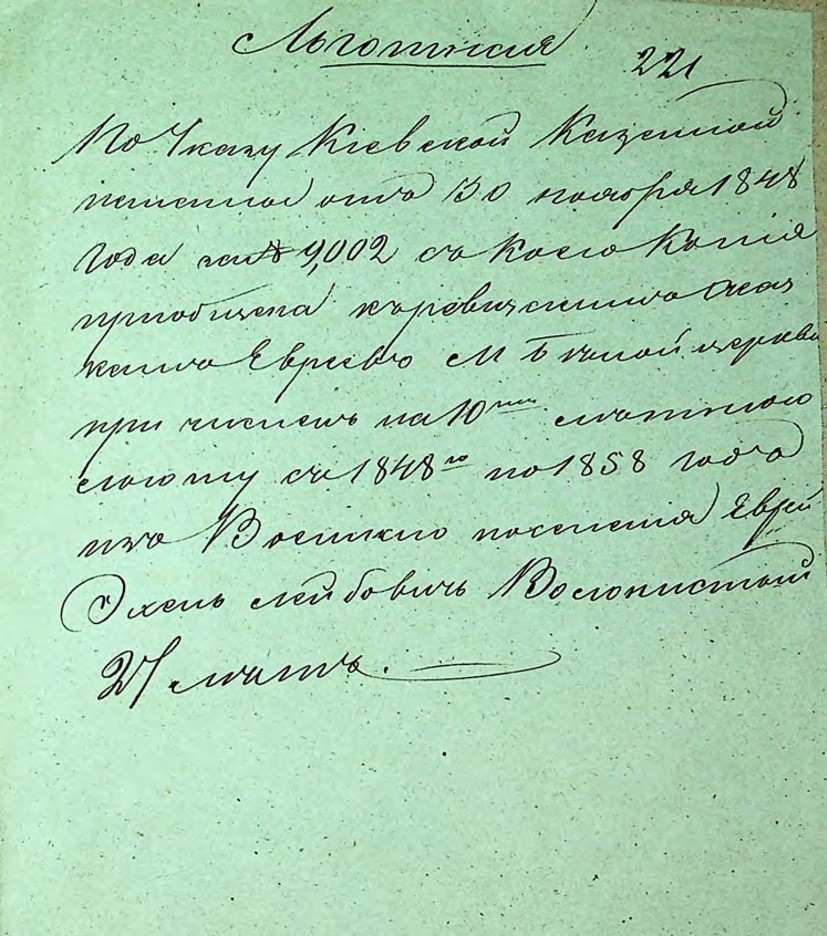 Льготныя
221
По Указу Кіевской Казенной
палаты отъ 30 ноября 1848
года за № 9,002 съ коего копія
пріобщена къ ревизскимъ сказ
камъ Евреевъ М Бѣлой церкви
при численъ на 10ти лѣтнюю
льготу съ 1848го по 1858 годъ
изъ Военнаго поселенія Еврей
Эхель Лейбовичъ Волокистый
27 лѣтъ.